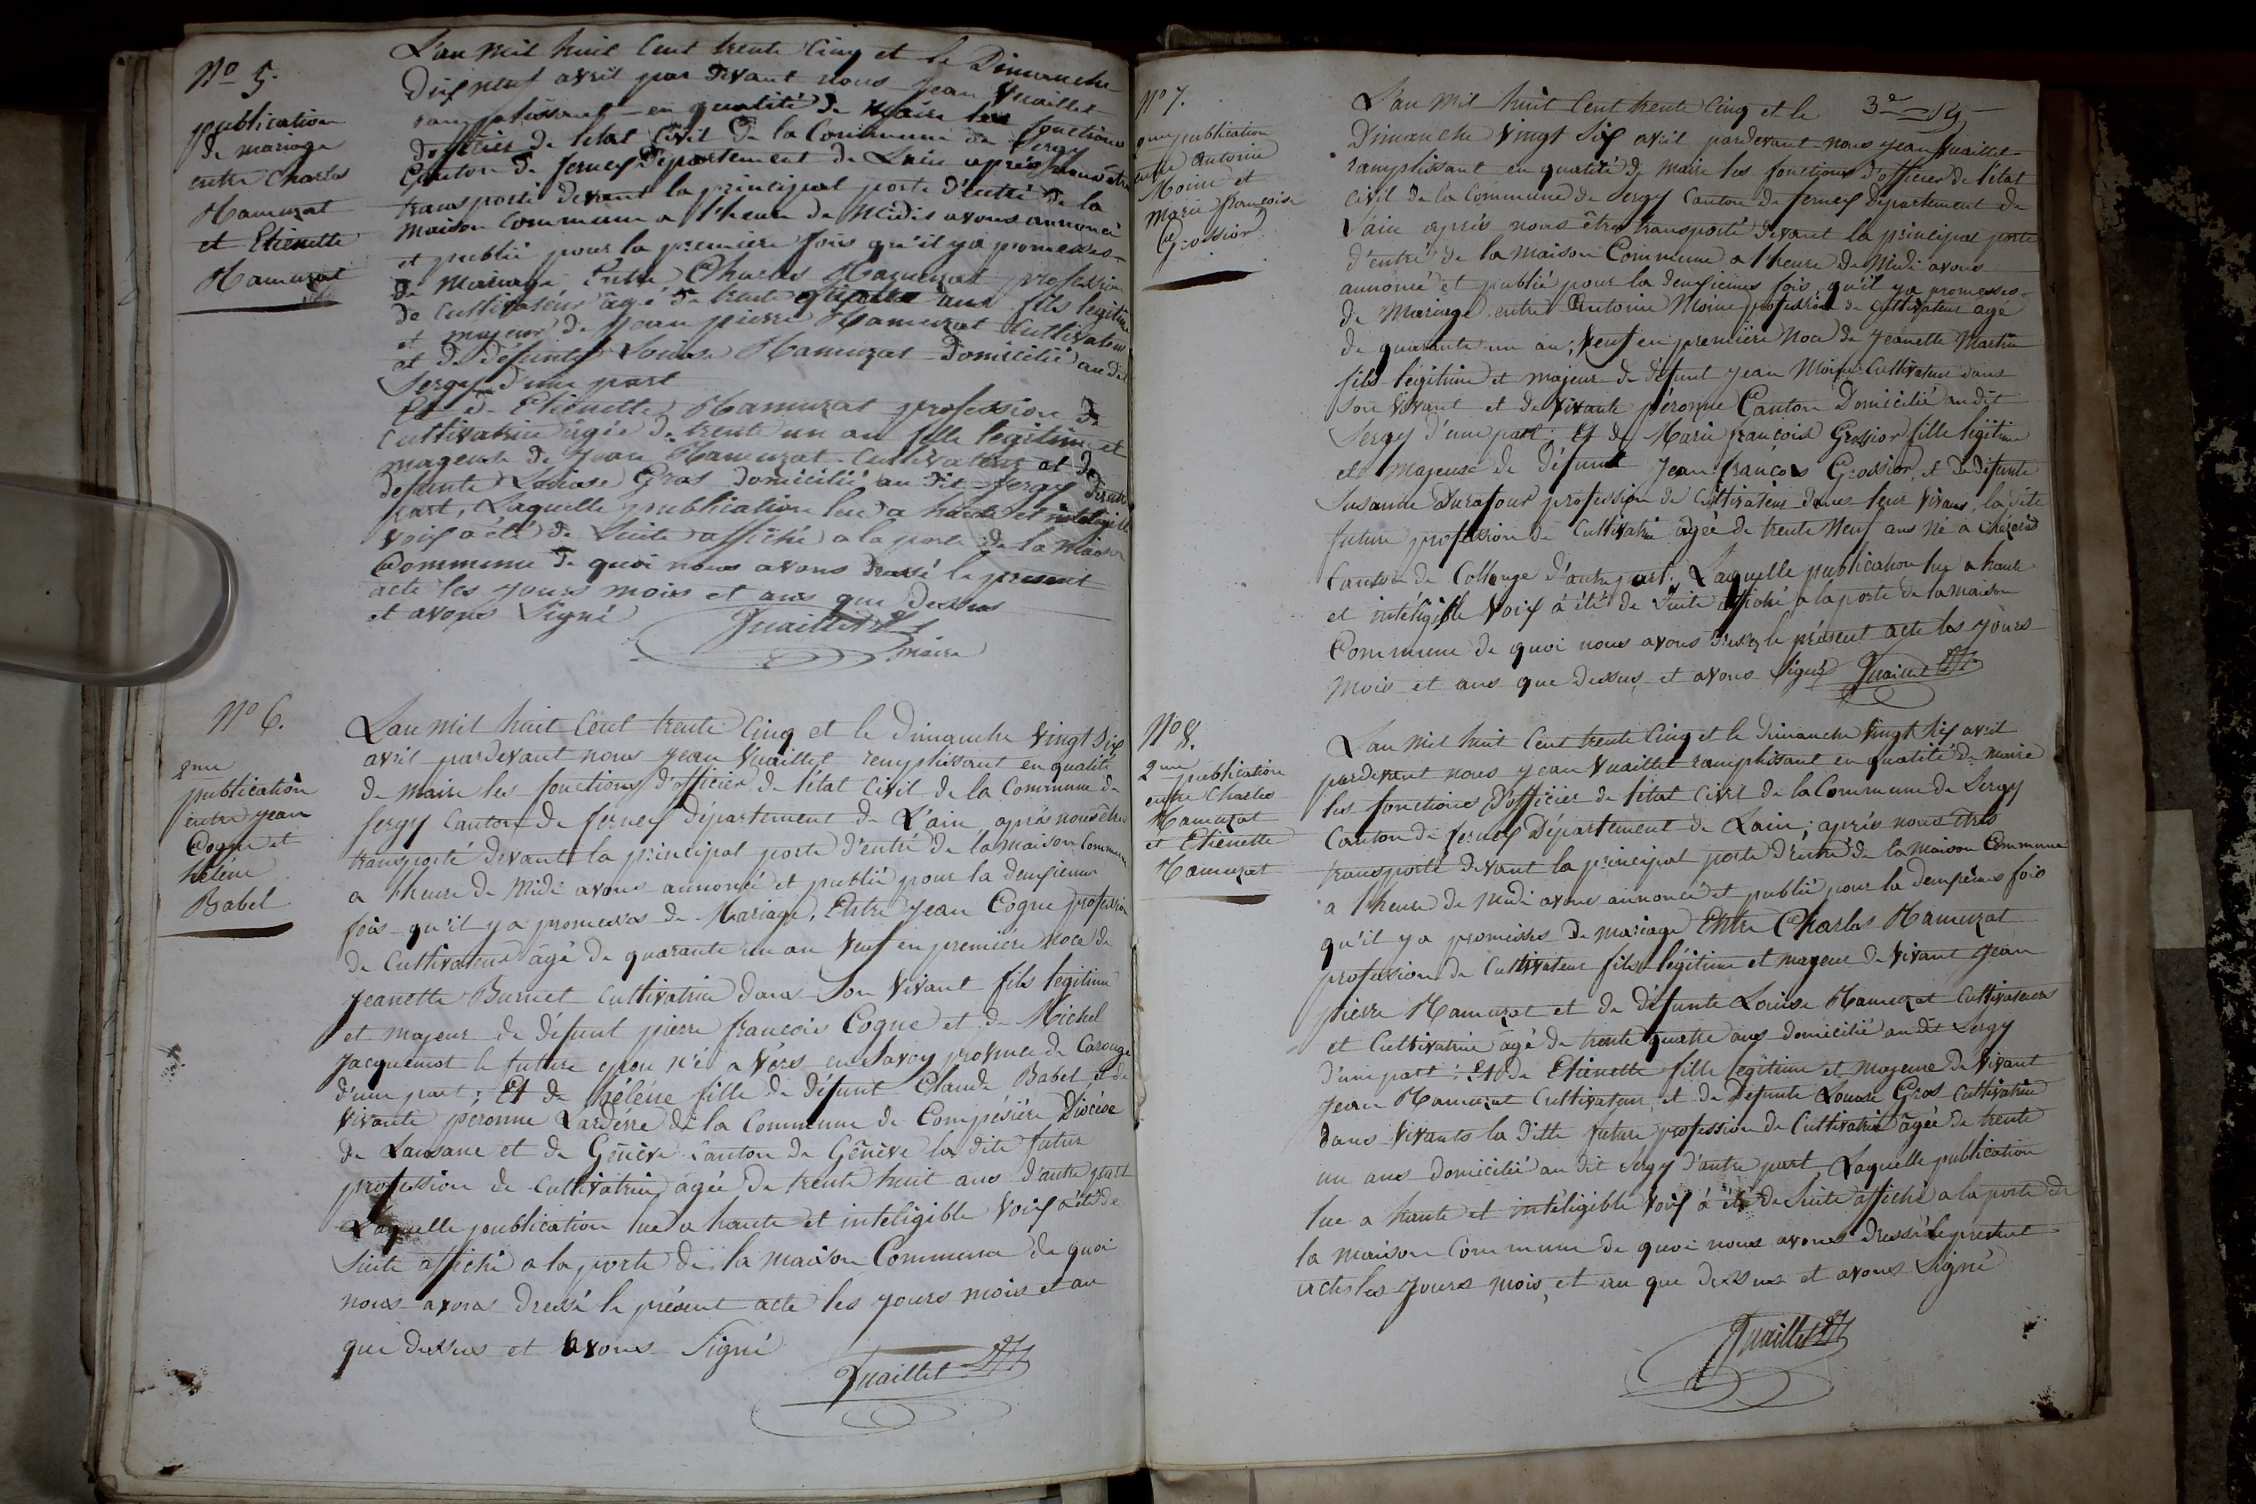 No 5.
publication
de mariage
entre Charles
Hamurat
et Etienette
Hamurat
L'an mil huit Cent trente Cinq et le Dimanche
dix neuf avril par devant nous Jean Vuaillet
ramplissant en qualité de maire les fonctions
d'officier de l'état Civil de la Commune de Sergy
Canton de ferney département de L'ain après nous être
transporté devant la principal porte d'entré de la
maison Commune a l'heure de Midis avons annoncé
et publié pour la premiere fois qu'il ya promesses
de Mariage Entre Charles Hamurat profession
de Cultivateur âgé de trente quatre ans fils legitime
et majeur de Jean pierre Hamurat Cultivateur
et de défunte Louise Hamurat domicilié au dit
Sergy d'une part
Et de Etienette Hamurat profession de
Cultivatrice âgée de trente un an fille legitime et
mageure de Jean Hamurat Cultivateur et de
defunte Louise Gros domicilié au dit Sergy d'autre
part, Laquelle publication lue a haute et inteligible
voix a été de Suite affiché a la porte de la Maison
Commune de quoi nous avons dressé le present
acte les jours mois et ans que dessus
et avons Signé
Vuaillet
maire
No 6.
2me
publication
entre jean
Cogne et
héléne
Babel
L'an mil huit Cent trente Cinq et le Dimanche vingt Six
avril pardevant nous jean Vuaillet remplissant en qualité
de maire les fonctions d'officier de l'état Civil de la Commune de
Sergy Canton de ferney département de L'ain après nous être
transporté devant la principal porte d'entré de la maison Commune
a l'heure de Midi avons annoncé et publié pour la deuxieme
fois qu'il ya promesses de Mariage, Entre jean Cogne profession
de Cultivateur âgé de quarante un an veuf en première noce de
jeanette Burnet Cultivatrice dans Son vivant fils legitime
et majeur de défunt pierre françois Cogne et de Michel
Jacquemot le future epou né a Vers en Savoy province de Carouge
d'une part; Et de héléne fille de défunt Claude Babel et de
vivante peronne Lardére de la Commune de Compésiére Diocése
de Lausane et de Génève Canton de Génève la dite futur
profession de Cultivatrice agée de trente huit ans d'autre part
Laquelle publication lue a haute et inteligible voix a été de
Suite affiché a la porte de la maison Commune de quoi
nous avons dressé le présent acte les jours mois et an
que dessus et avons Signé
Vuaillet
No 7.
2me publication
entre Antoine
Moine et
Marie françoise
Grossior
3e
L'an mil huit Cent trente Cinq et le
Dimanche vingt Six avril pardevant nous jean Vuaillet
ramplissant en qualité de maire les fonctions d'officier de l'état
Civil de la Commune de Sergy Canton de ferney département de
L'ain après nous être transporté devant la principal porte
d'entré de la maison Commune a l'heure de Midi avons
annoncé et publié pour la deuxieme fois qu'il ya promesses
de Mariage entre Antoine Moine profession de Cultivateur agé
de quarante un an, veuf en première Noce de Jeanette Martin
fils légitime et majeur de défunt Jean Moine Cultivateur dans
Son vivant et de vivante péronne Canton Domicilié au dit
Sergy d'une part, Et de Marie françoise Grossior fille legitime
et Majeuse de défunt Jean françois Grossior, et de défunte
Susanne Durafour profession de Cultivateur dans leur vivans, la dite
future profession de Cultivatrice agée de trente Neuf ans né a Chézerid
Canton de Collonge d'autre part. Laquelle publication lue a haute
et intéligible voix a été de Suite affiché a la porte de la maison
Commune de quoi nous avons dressé le présent acte les jours
Mois et ans que dessus et avons Signé Vuaillet
No 8.
2me
publication
entre Charles
Hamurat
et Etienette
Hamurat
L'an mil huit Cent trente Cinq et le dimanche vingt Six avril
pardevant nous jean Vuaillet ramplissant en qualité de maire
les fonctions d'officier de l'état Civil de la Commune de Sergy
Canton de ferney Département de Lain; après nous être
transporté devant la principal porte d'entré de la maison Commune
a l'heure de midi avons annoncé et publié pour la deuxiemes fois
qu'il ya promesses de mariage Entre Charles Hamurat
profession de Cultivateur fils légitime et mageur de vivant Jean
pierre Hamurat et de défunte Louise Hamurat Cultivateur
et Cultivatrice âgé de trente quatre ans domicilié au dit Sergy
d'une part; Et de Etienette fille légitime et Mageure de vivant
Jean Hamurat Cultivateur et de Défunte Louise Gros Cultivatrice
dans vivants la ditte future profession de Cultivatrice âgée de trente
un ans domicilié au dit Sergy d'autre part Laquelle publication
lue a haute et intéligible voix a été de Suite affiché a la porte de
la maison Commune de quoi nous avons dressé le present
acte les jours mois, et an que dessus et avons Signé
Vuaillet